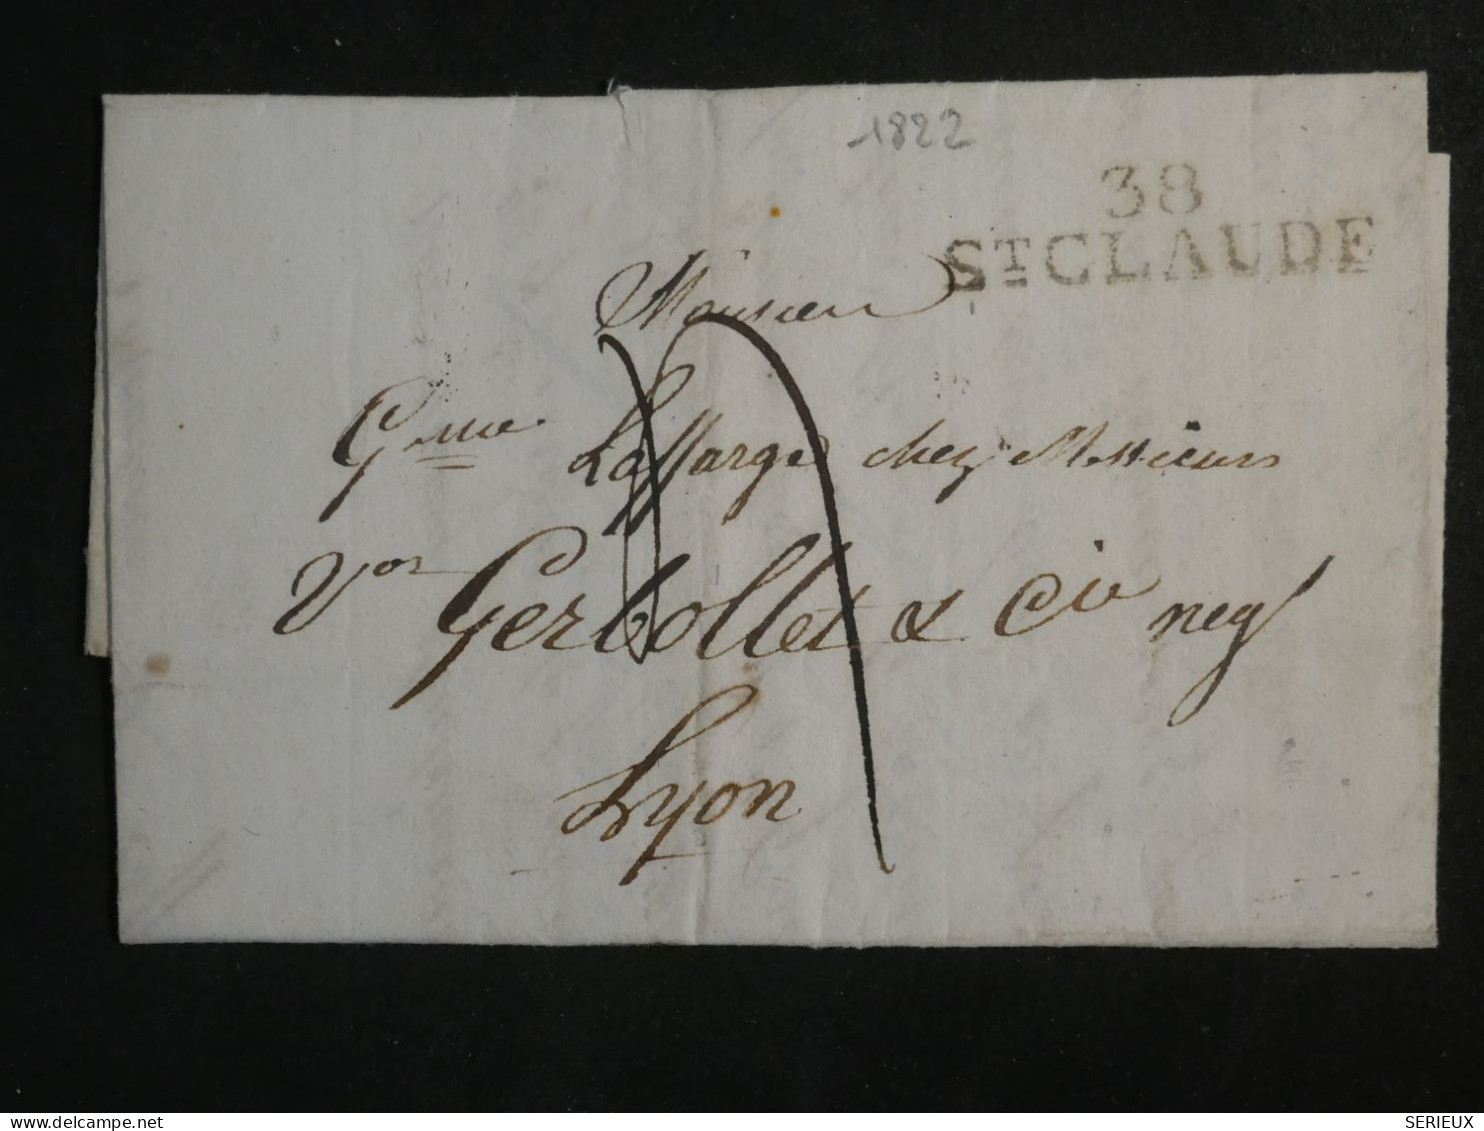 1822
38
STCLAUDE
Monsieur
Gme Laffarge chez Messieurs
Vor Gerbollet & Cie neg
Lyon
delcampe.net
SERIEUX